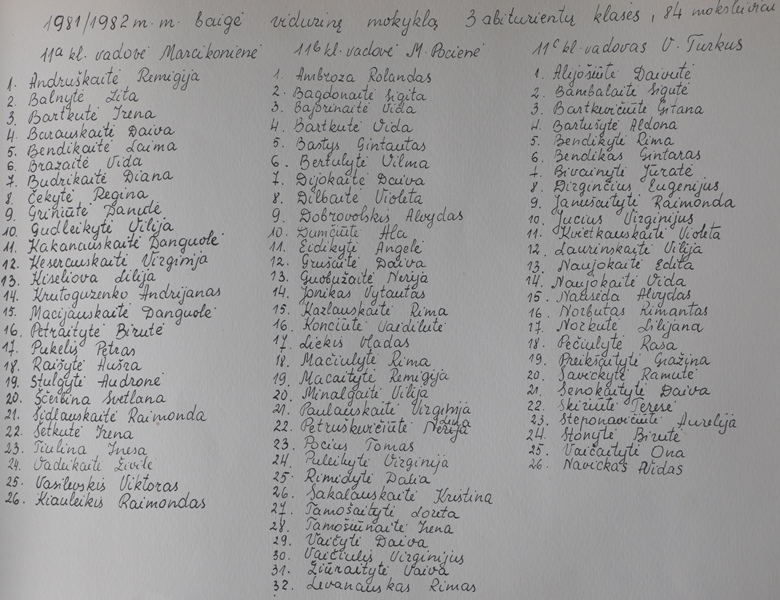 1981/1982 m. m. baigė vidurinę mokyklą 3 abiturientų klasės, 84 moksleiviai
11a kl. vadovė Marcikonienė
1. Andruškaitė Remigija
2. Balnytė Zita
3. Bartkutė Irena
4. Barauskaitė Daiva
5. Bendikaitė Laima
6. Brazaitė Vida
7. Budrikaitė Diana
8. Čekytė Regina
9. Griniūtė Danutė
10. Gudleikytė Vilija
11. Kakanauskaitė Danguolė
12. Keserauskaitė Virginija
13. Kiseliova Lilija
14. Krutoguzenko Andrijanas
15. Macijauskaitė Danguolė
16. Petraitytė Birutė
17. Pukelis Petras
18. Raišytė Aušra
19. Stulgytė Audronė
20. Ščerbina Svetlana
21. Šidlauskaitė Raimonda
22. Šetkutė Irena
23. Tiulina Inesa
24. Vadeikaitė Živilė
25. Vasilevskis Viktoras
26. Kiauleikis Raimondas
11b kl. vadovė M. Pocienė
1. Ambroza Rolandas
2. Bagdonaitė Sigita
3. Bajorinaitė Vida
4. Bartkutė Vida
5. Bastys Gintautas
6. Bertulytė Vilma
7. Dijokaitė Daiva
8. Dilbaitė Violeta
9. Dobrovolskis Alvydas
10. Dumčiūtė Ala
11. Eidikytė Angelė
12. Grušaitė Daiva
13. Guobužaitė Nerija
14. Jonikas Vytautas
15. Kazlauskaitė Rima
16. Konciūtė Vaidilutė
17. Liekis Vladas
18. Mačiulytė Rima
19. Macaitytė Remigija
20. Minalgaitė Vilija
21. Paulauskaitė Virginija
22. Petruskevičiūtė Nerija
23. Pocius Tomas
24. Puleikytė Virginija
25. Rimidytė Dalia
26. Sakalauskaitė Kristina
27. Tamošaitytė Loreta
28. Tamošiūnaitė Irena
29. Vaičytė Daiva
30. Vaičiulis Virginijus
31. Žiūraitytė Vaiva
32. Levanauskas Rimas
11c kl. vadovas V. Turkus
1. Alijošiūtė Daivutė
2. Bambalaitė Sigutė
3. Bartkevičiūtė Gitana
4. Bartušytė Aldona
5. Bendikytė Rima
6. Bendikas Gintaras
7. Bivainytė Jūratė
8. Dirginčius Eugenijus
9. Janušaitytė Raimonda
10. Jucius Virginijus
11. Kvietkauskaitė Violeta
12. Laurinskaitė Vilija
13. Naujokaitė Edita
14. Naujokaitė Vida
15. Nausėda Alvydas
16. Norbutas Rimantas
17. Norkutė Lilijana
18. Pečiulytė Rasa
19. Preikšaitytė Gražina
20. Savickytė Ramutė
21. Senokaitytė Daiva
22. Skiriūtė Teresė
23. Steponavičiūtė Aurelija
24. Stonytė Birutė
25. Vaičaitytė Ona
26. Navickas Aidas